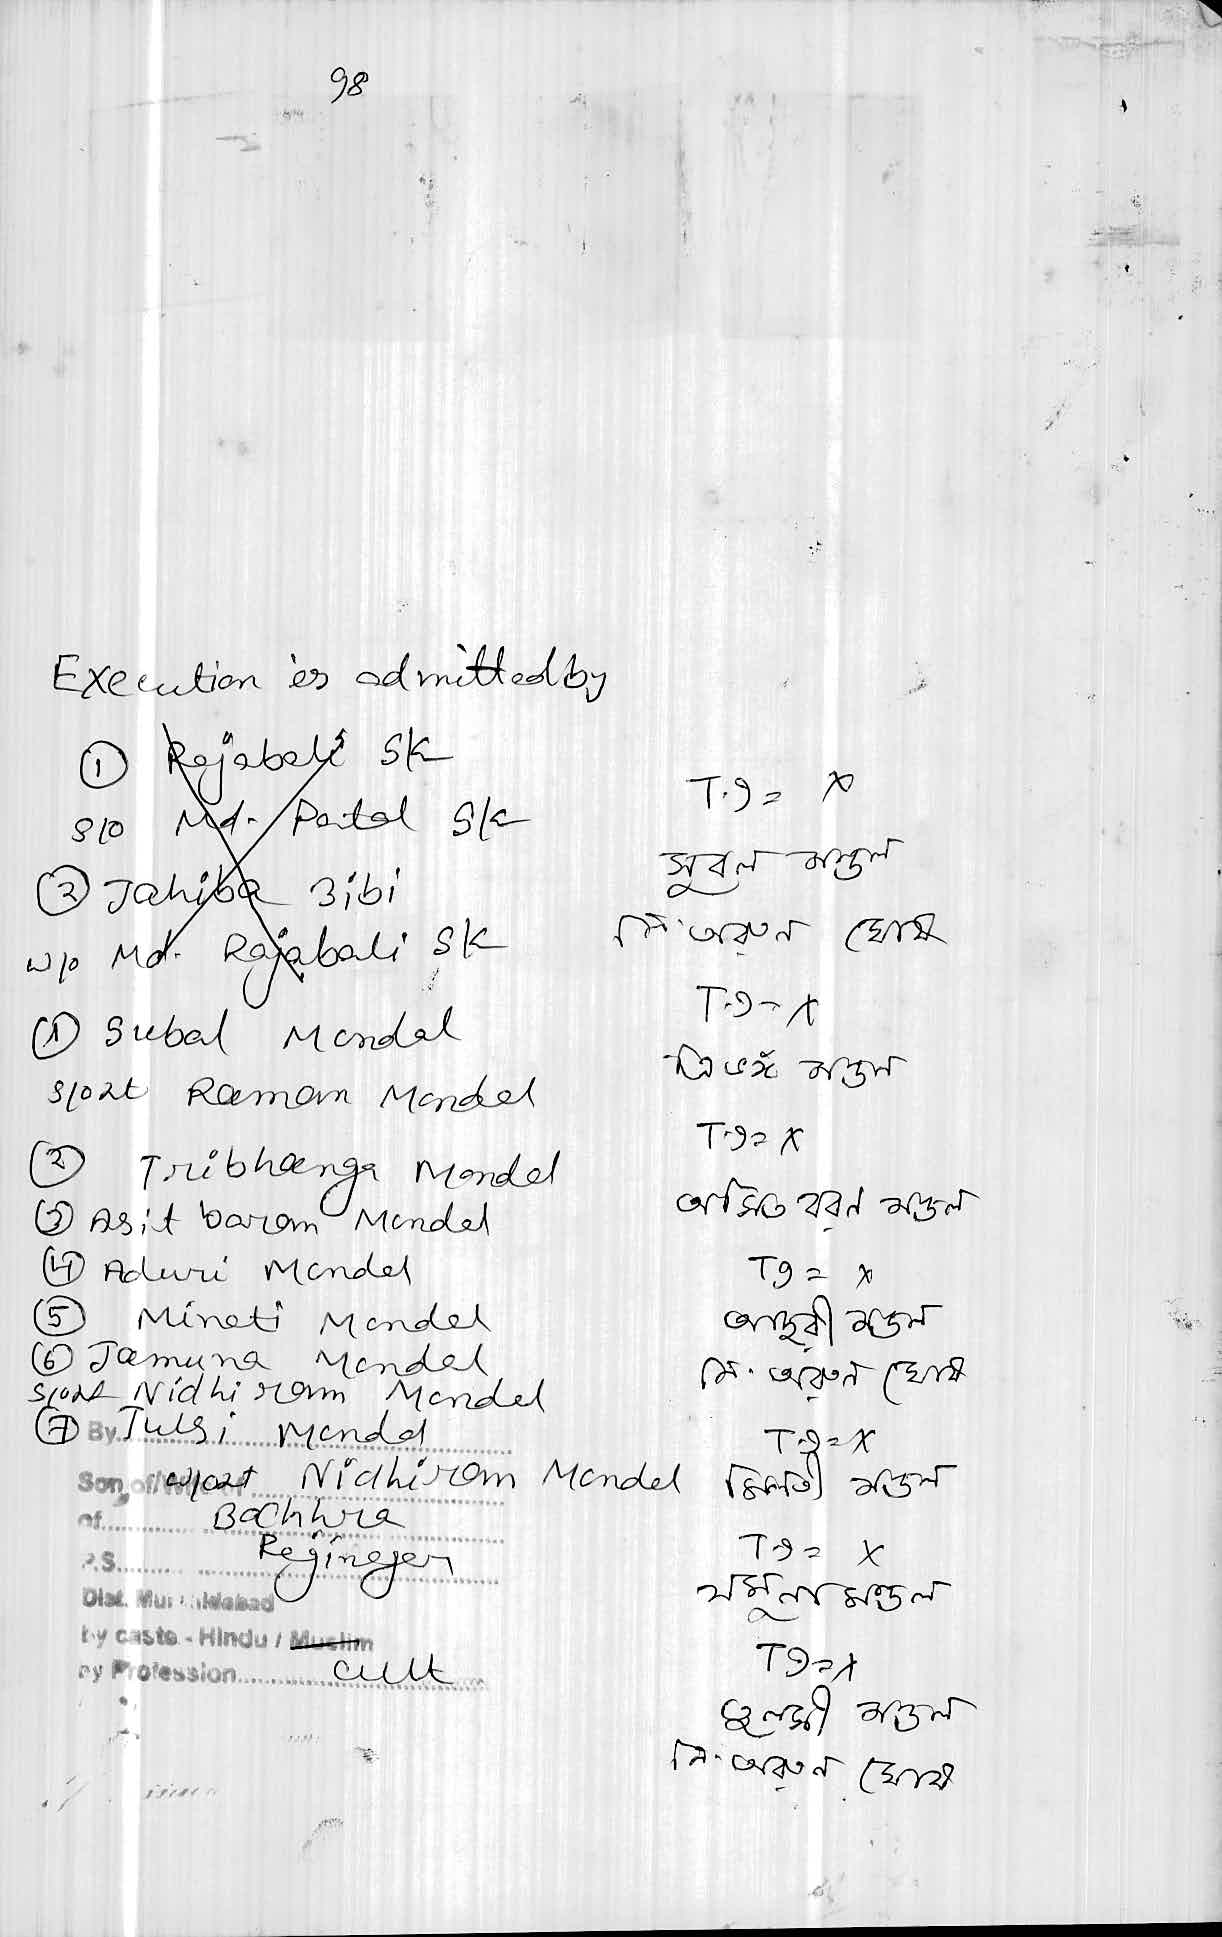 98
Execution is admitted by
① Rajabali SK
S/O Md. Patal SK
② Jahiba Bibi
W/o Md. Rajabali SK
① Subal Mondal
S/o Lt Raman Mondal
② Tribhanga Mondal
③ Asit baran Mondal
④ Aduri Mondal
⑤ Minati Mondal
⑥ Jamuna Mondal
S/o Lt Nidhiram Mondal
⑦ By Tulsi Mondal
Son of/Wife of W/o Lt Nidhiram Mondal
of Bachhra
P.S. Rejinagar
Dist. Murshidabad
by caste - Hindu / Muslim
by Profession cult
T.I = X
সুবল মন্ডল
নি. অরুন ঘোষ
T.I = X
ত্রিভঙ্গ মন্ডল
T.I = X
অসিত বরন মন্ডল
T.I = X
আদুরী মন্ডল
নি. অরুন ঘোষ
T.I = X
মিনতী মন্ডল
T.I = X
যমুনা মন্ডল
T.I = X
তুলসী মন্ডল
নি. অরুন ঘোষ